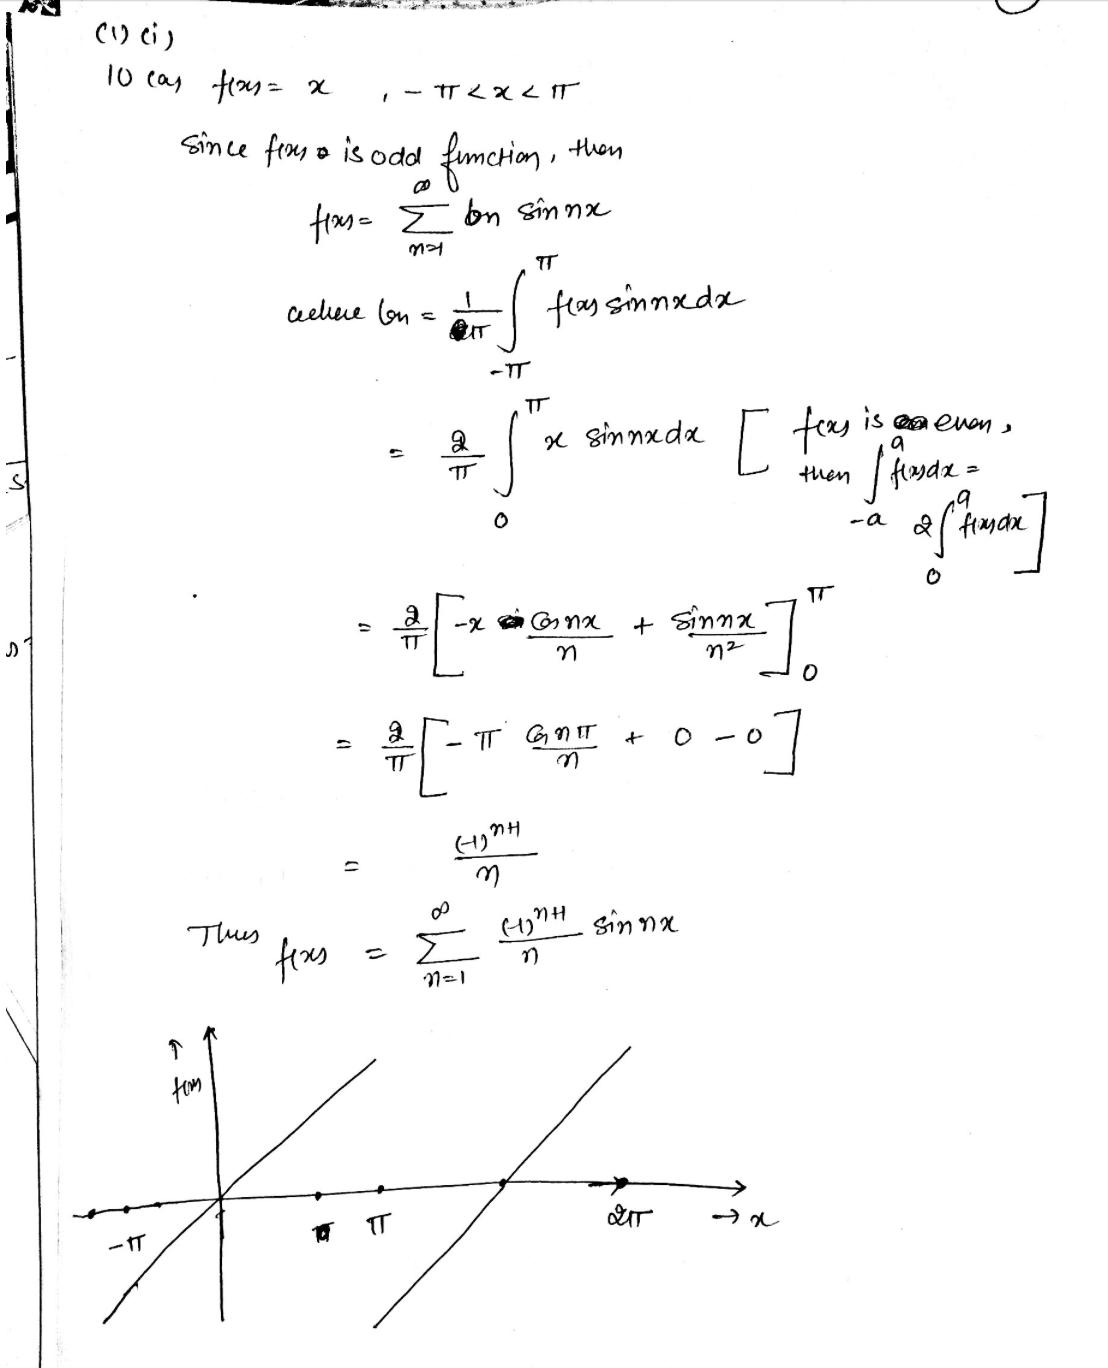 (1) (i)
10 (a) f(x) = x , -π < x < π
Since f(x) is odd function, then
f(x) = ∑_{n=1}^{∞} bn sin nx
where bn = 1/π ∫_{-π}^{π} f(x) sin nx dx
= 2/π ∫_{0}^{π} x sin nx dx [ f(x) is even,
then ∫_{-a}^{a} f(x)dx =
2∫_{0}^{a} f(x)dx ]
= 2/π [ -x cos nx/n + sin nx/n² ]_{0}^{π}
= 2/π [ -π cos nπ/n + 0 - 0 ]
= (-1)^{n+1}/n
Thus f(x) = ∑_{n=1}^{∞} (-1)^{n+1}/n sin nx
↑
f(x)
-π π 2π → x